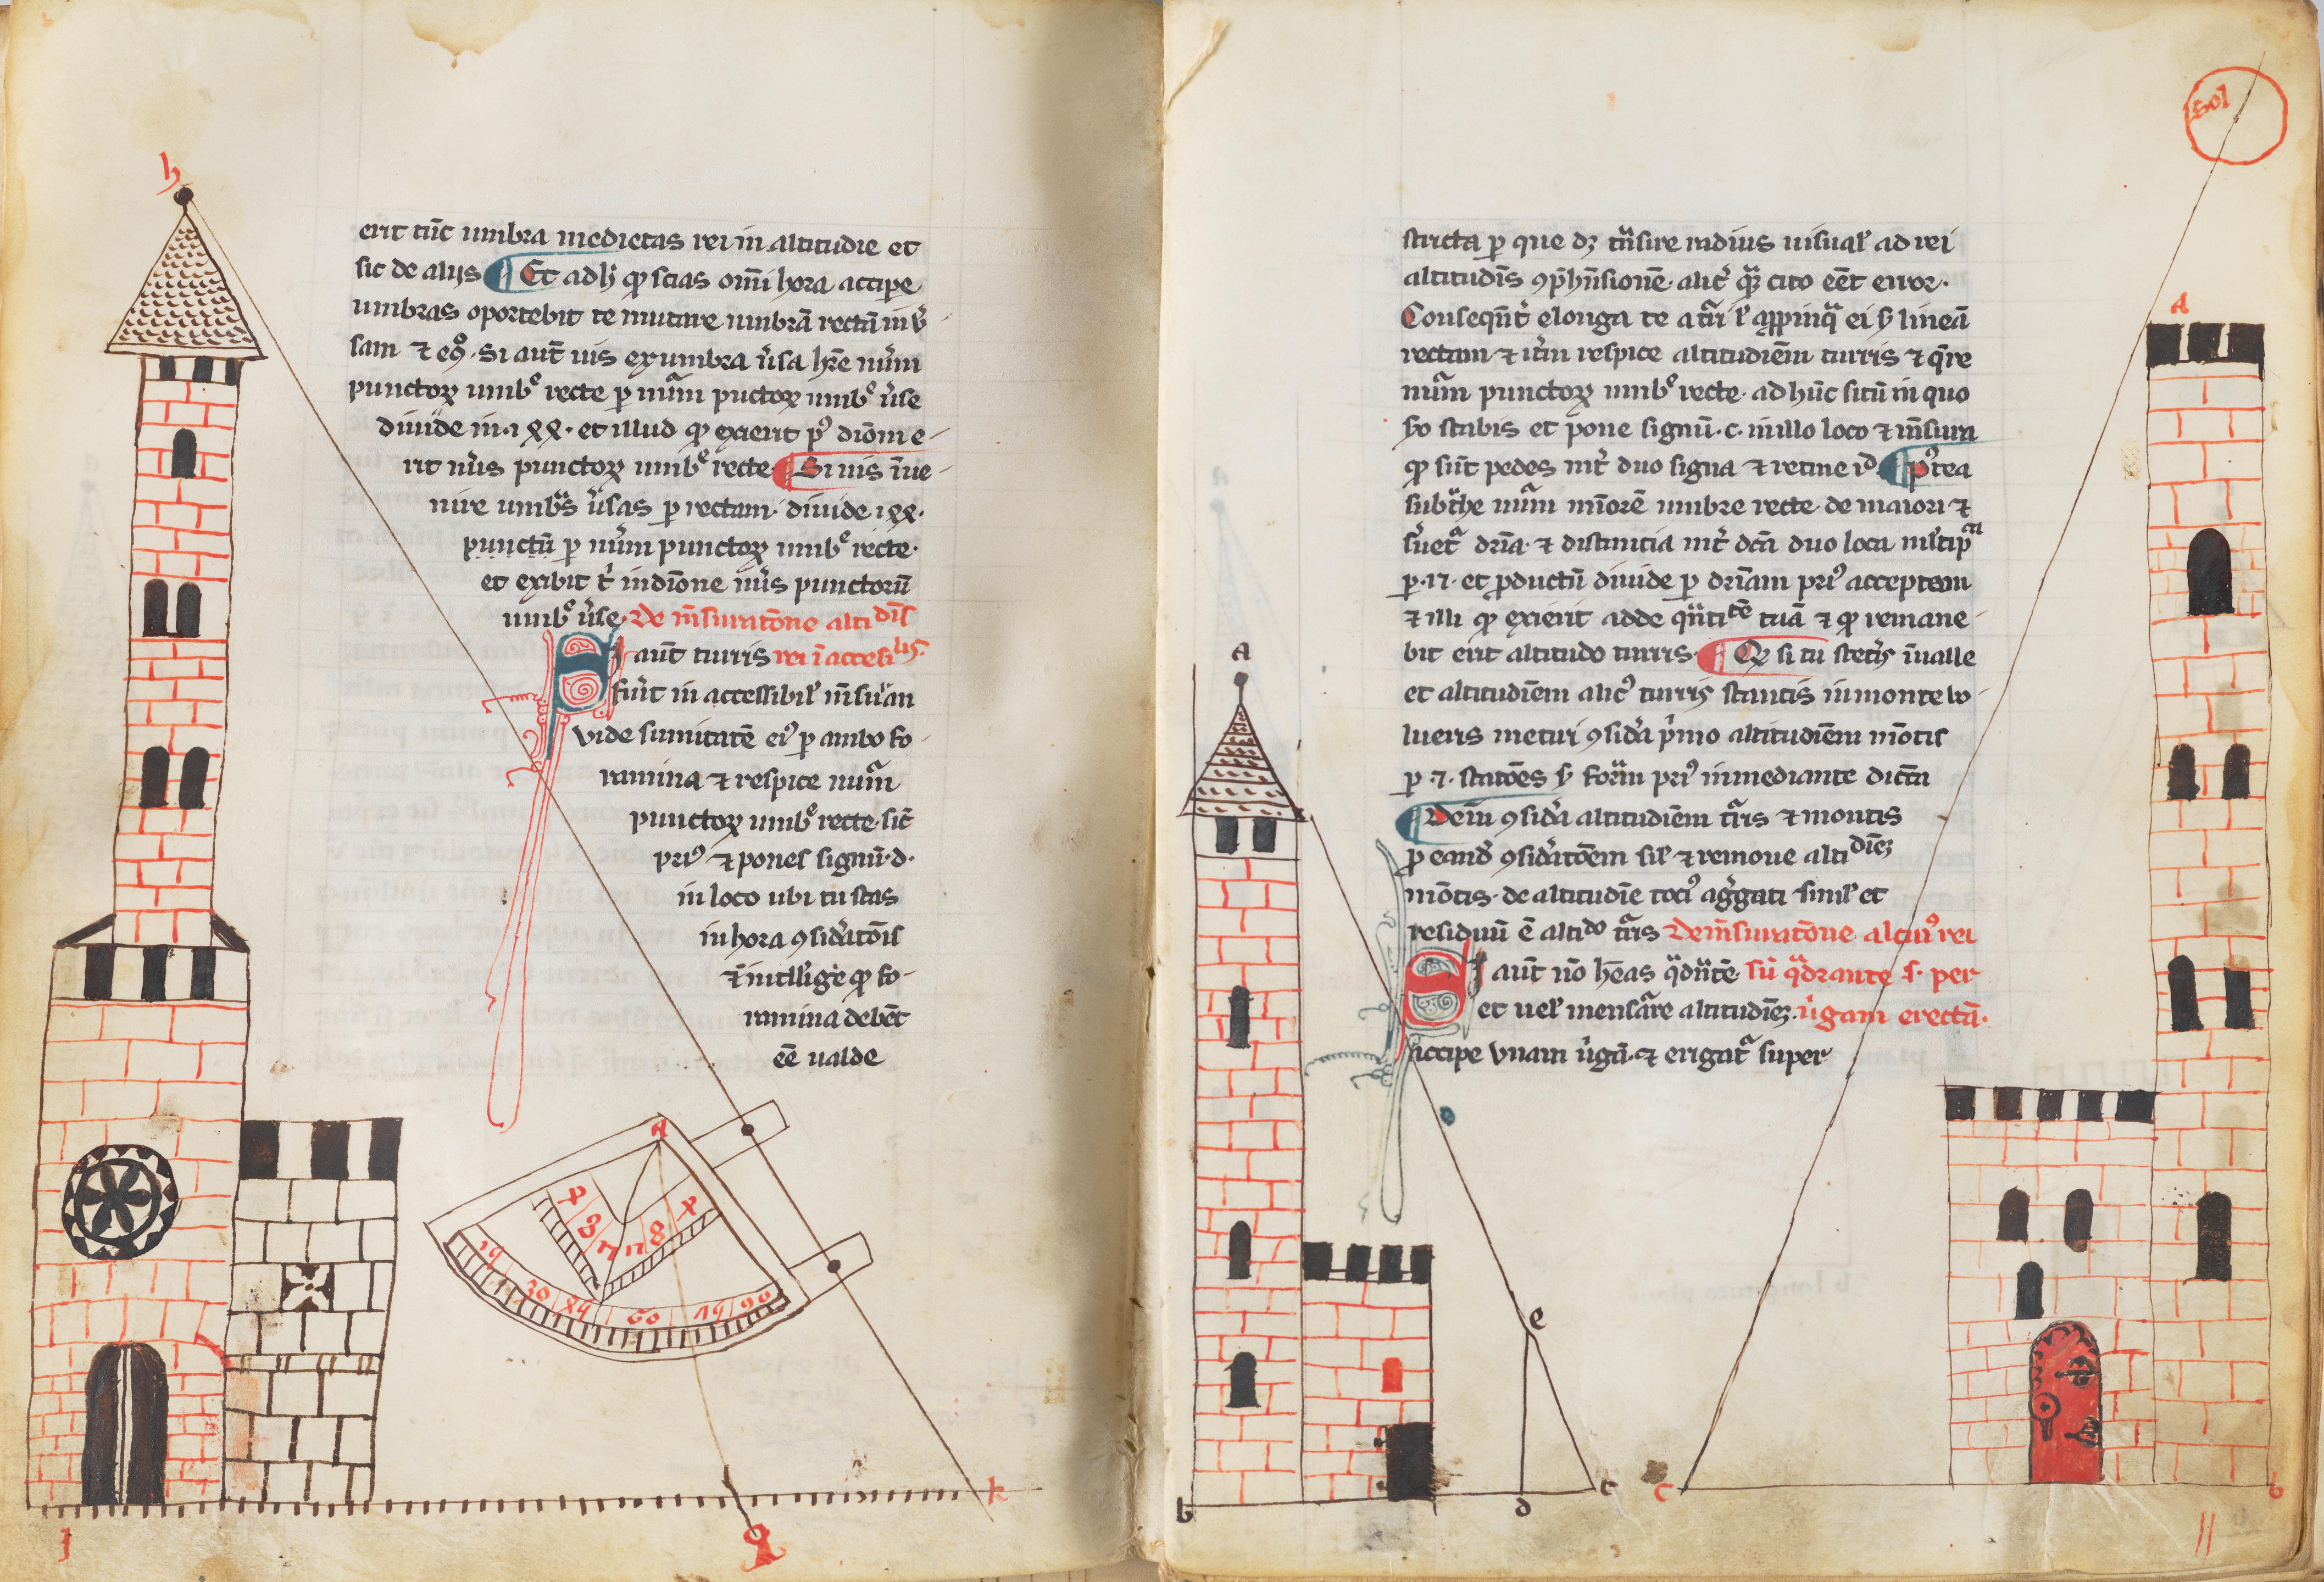 h
erit tūc umbra medietas rei in altitudīe et
sic de alijs ¶ Et adhꝫ qꝫ scias omī hora accipe
umbras oportebit te mutare umbrā rectā in v̓
sam ⁊ eꝯ᷒. Si aūt uis ex umbra v̓sa hr̄e nūm
punctoꝝ umbᵉ recte ꝑ nūm pūctoꝝ umbᵉ v̓se
diuide in .1ꝝꝝ. et illud qꝫ exierit pꝰ diōm e-
rit nūs punctoꝝ umbᵉ recte ¶ Si uis īue-
nire umbᵃs v̓sas ꝑ rectam diuide .1ꝝꝝ.
punctū ꝑ nūm punctoꝝ umbᵉ recte.
et exibit t̄ indīone nūs punctorū
umbᵉ v̓se. De m̄suratōne altidīs
Si aūt turris rei īaccesibˡⁱˢ.
fūit in accessibil̓ m̄surᵃn
vide sumitatē eiꝰ ꝑ ambo fo-
ramina ⁊ respice numᵃ
punctoꝝ umbᵉ recte. sic̄
priꝰ ⁊ pones signū .d.
in loco ubi tu stas
in hora ꝯsidᵃtōis
⁊ intll̓ige qꝫ fo-
ramina debēt
eē ualde
A
k
g
J
sol
stricta ꝑ que dꝫ tn̄sire radius uisual̓ ad rei
altitudīs ꝯp̄hn̄sionē. alit̓ qᵃ cito eēt error.
Conseqn̄t̓ elonga te a tᵃri l̓ aꝓpinqᵃ ei ẜ lineā
rectam ⁊ itm̄ respice altitudīēm turris ⁊ qᵉre
nūm punctoꝝ umbᵉ recte. ad hūc sitū in quo
ẜo stabis et pone signū .c. in illo loco ⁊ m̄sura
qꝫ sūt pedes int̓ duo signa ⁊ retine iᵈ ¶ pᵒtea
subtᵃhe nūm mīorē umbre recte de maiori ⁊
ẜuetᵃ dr̄ia. ⁊ distantia int̓ dc̄a duo loca ml̓tipᶜᵃ
ꝑ .12. et ꝓductū diuide ꝑ dr̄iam priꝰ acceptam
⁊ illi qꝫ exierit adde qᵃtiᵗᵉ tuā ⁊ qꝫ remane-
bit erit altitudo turris. ¶ Qꝫ si tu stet̓is ī ualle
et altitudīēm alicꝰ turris stantis in monte vo-
lueris metiri ꝯsidᵃ pᵒmo altitudīēm mōtis
ꝑ .2. statōes ẜ forᵃm priꝰ inmediante dictā
¶ Dein ꝯsidᵃ altitudīēm tᵃris ⁊ montis
ꝑ eandē ꝯsidᵃtōem sil̓ ⁊ remoue altiᵈⁱᵉ
mōtis. de altitudīe tociꝰ agᵃgati simil̓ et
residuū ē altiᵈᵒ tᵃris De m̄suratōne alcuiꝰ rei
Si aūt nō hēas qᵃdn̄tē sn̄ qᵃdrante s. per
et uel̓ mensᵃre altitudīē. v̓gam erectā.
accipe vnam v̓gā. ⁊ erigatᵃ super
A
A
e
b
d
c
c
b
11